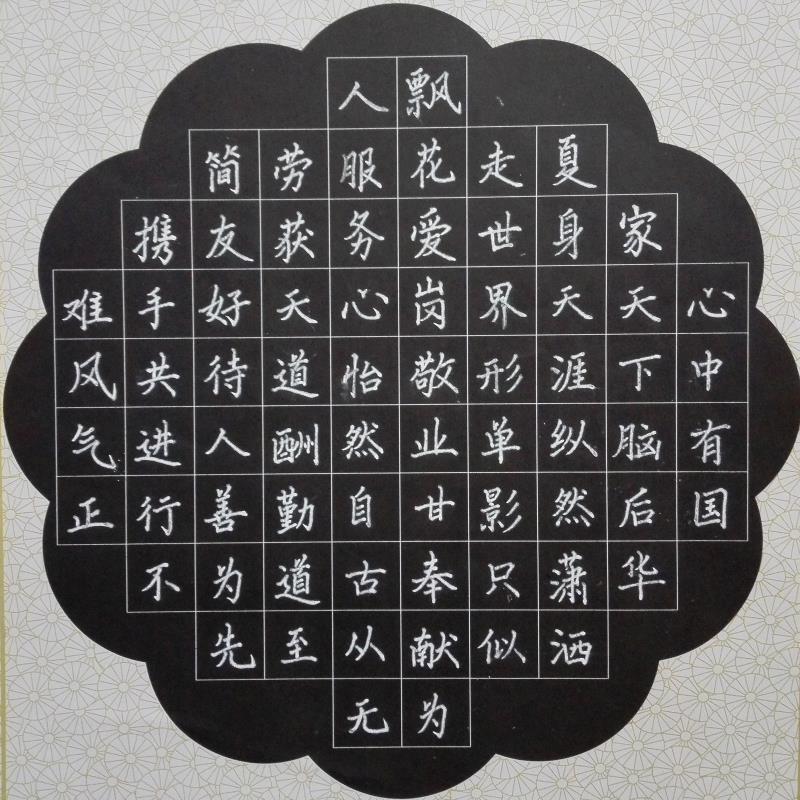 心中有国
家天下脑后华
夏身天涯纵然潇洒
走世界形单影只似
飘花爱岗敬业甘奉献为
人服务心怡然自古从无
劳获天道酬勤道至
简友好待人善为先
携手共进行不
难风气正